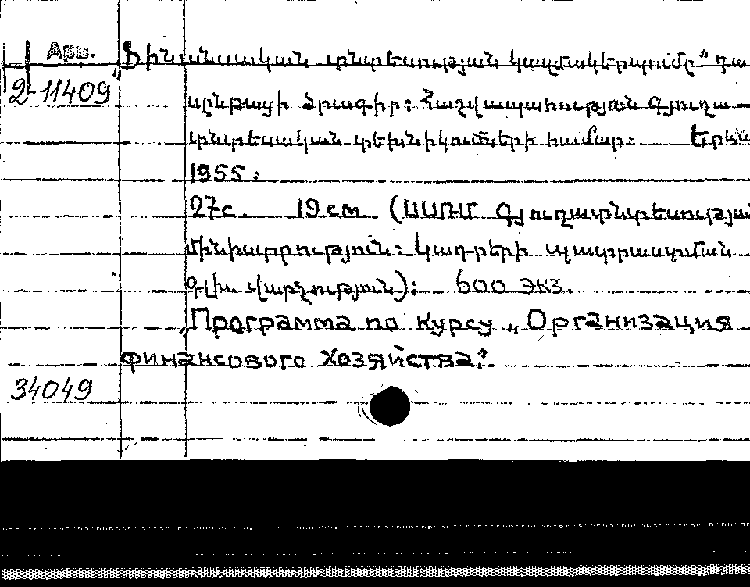 Арм.
2-11409
"Ֆինանսական տնտեսության կազմակերպումը" դա
սընթացի ծրագիր: Հաշվապահության գյուղա
տնտեսական տեխնիկումների համար: Երև
1955:
27с. 19см (ՍՍՌՄ Գյուղատնտեսության
մինիստրություն: Կադրերի պատրաստման
գլխ. վարչություն): 600 экз.
"Программа по курсу „Организация
финансового хозяйства".
34049